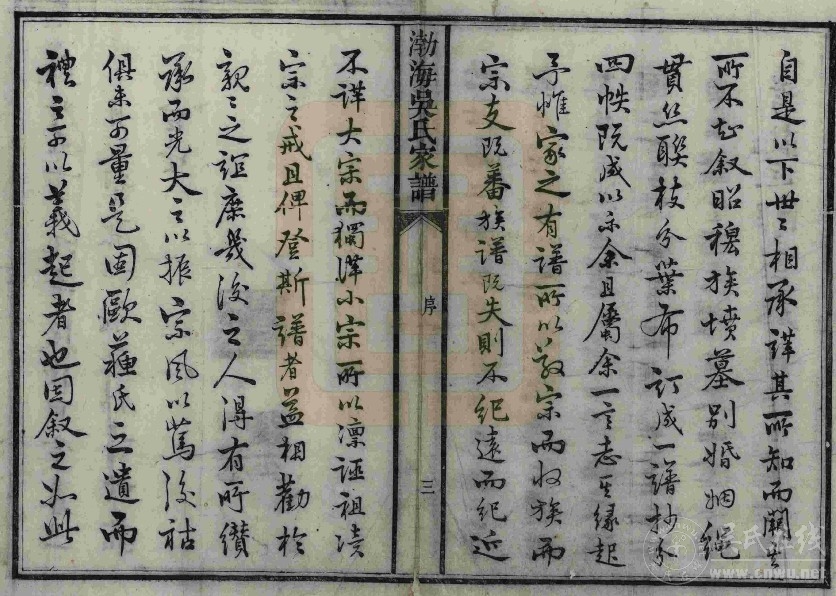 自是以下世〻相承詳其所知而闕其
所不知叙昭穆族墳墓別婚姻繩
貫絲聯枝分葉布訂成一譜抄分
四帙既成以示余且屬余一言志其緣起
予惟家之有譜所以敬宗而收族而
宗支既蕃族譜既失則不紀遠而紀近
渤海吳氏家譜
序
三
不詳大宗而獨詳小宗所以凜誣祖瀆
宗之戒且俾登斯譜者益相勸於
親〻之誼庶幾後之人得有所纘
承而光大之以振宗風以篤後祜
俱未可量是固歐蘇氏之遺而
禮之可以義起者也因叙之如此
吳氏在线
www.cnwu.net